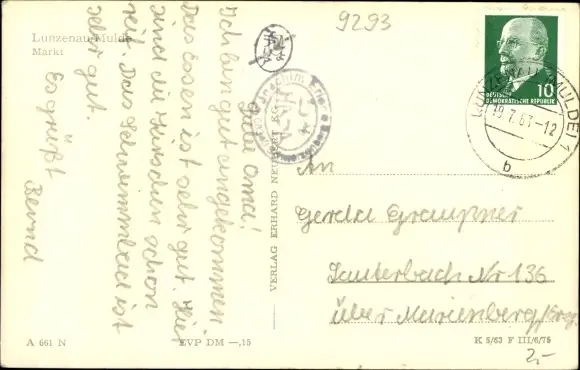 Lunzenau/Mulde
Markt
9293
DEUTSCHE
DEMOKRATISCHE REPUBLIK
10
LUNZENAU (MULDE) 1
19.7.63-12
b
Gute Oma!
Ich bin gut angekommen.
Das Essen ist sehr gut. Hier
sind die Kirschen schon
reif. Das Schwimmbad ist
sehr gut.
Es grüßt
Bernd
VERLAG ERHARD NEUBERT KG
An
Gerda Graupner
Lauterbach Nr 136
über Marienberg/Erzg.
A 661 N
EVP DM —,15
K 5/63 F III/6/75
2,-